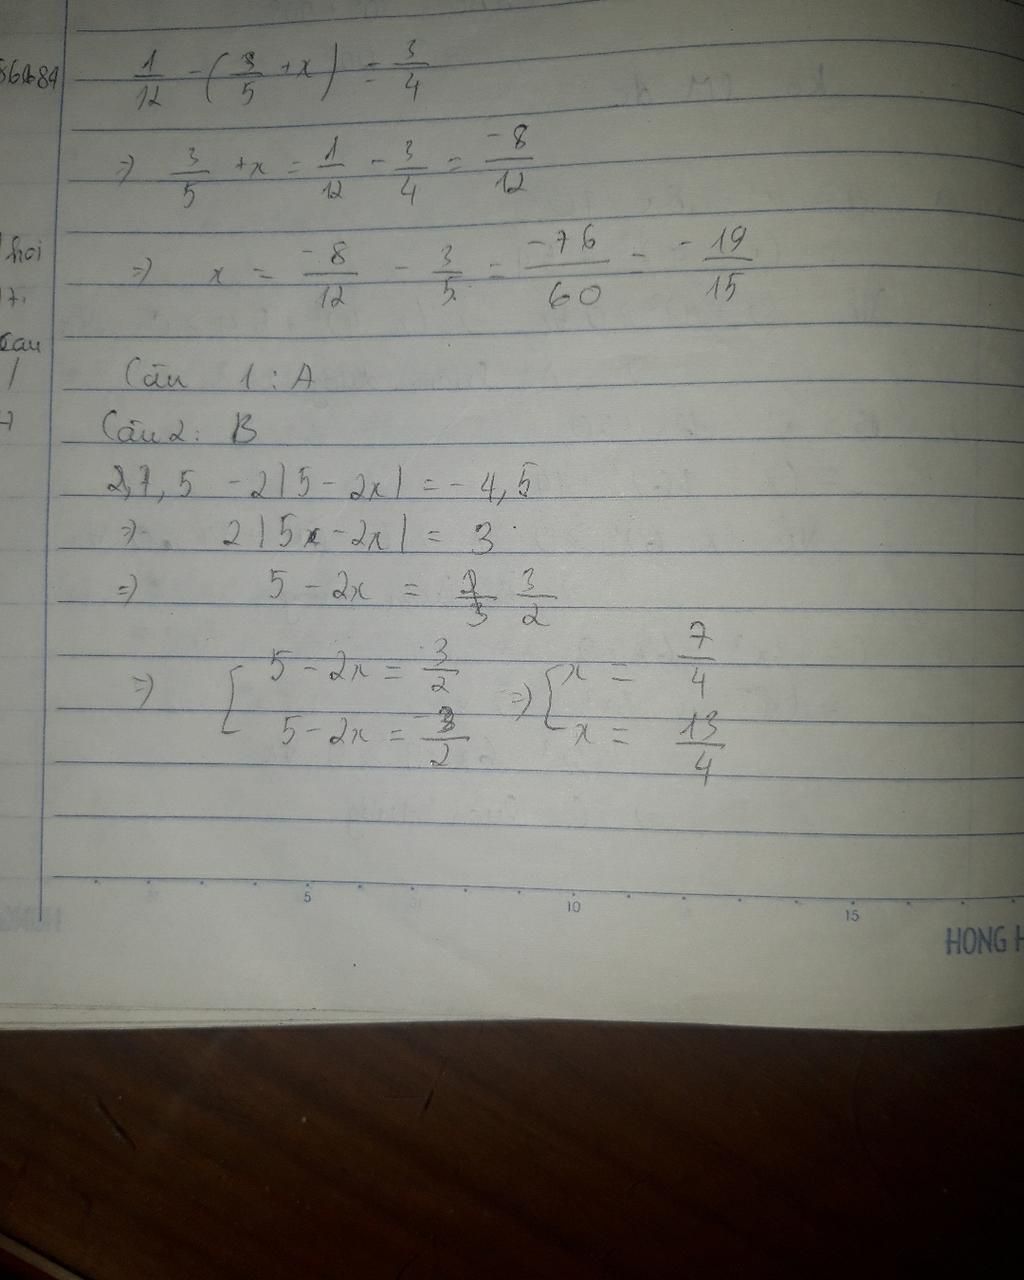 1/12 - (3/5 + x) = 3/4
=> 3/5 + x = 1/12 - 3/4 = -8/12
=> x = -8/12 - 3/5 = -76/60 = -19/15
hoi
Câu 1 : A
Câu 2 : B
7,5 - 2|5 - 2x| = -4,5
=> 2|5 - 2x| = 3
=> 5 - 2x = 3/2
=> [ 5 - 2x = 3/2 => [ x = 7/4
5 - 2x = -3/2 x = 13/4
5 10 15
HONG H